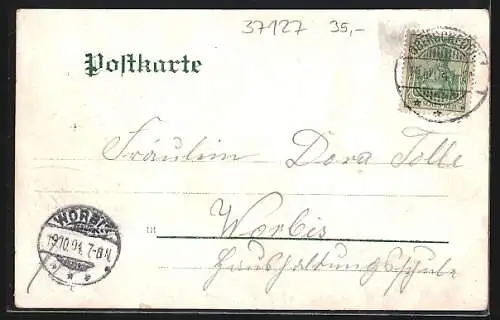 37127 35,-
Postkarte
Fräulein Dora Tolle
in Worbis
Haushaltungsschule
WORBIS
19.10.04. 7-8 N.